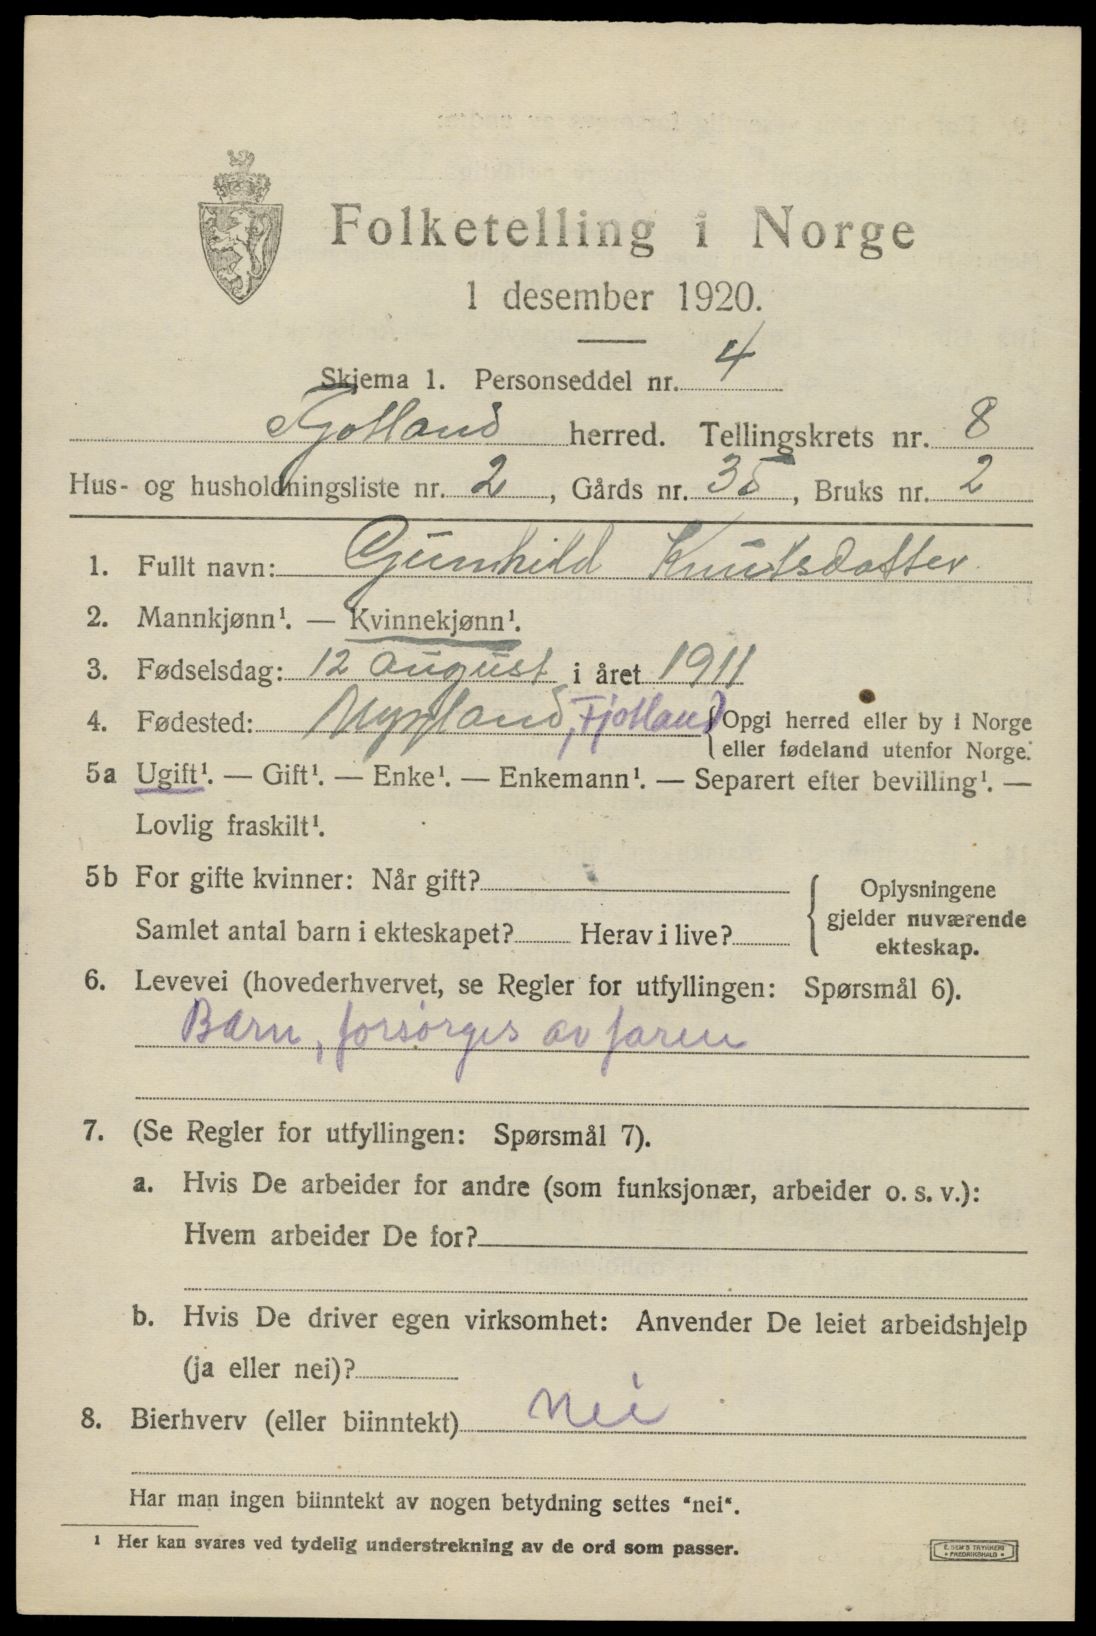 Folketelling i Norge
1 desember 1920.
Skjema 1. Personseddel nr. 4
Fjotland herred. Tellingskrets nr. 8
Hus- og husholdningsliste nr. 2, Gårds nr. 35, Bruks nr. 2
1. Fullt navn: Gunhild Knutsdatter
2. Mannkjønn¹. — Kvinnekjønn¹.
3. Fødselsdag: 12 august i året 1911
4. Fødested: , Fjotland {Opgi herred eller by i Norge
eller fødeland utenfor Norge.
5a Ugift¹. — Gift¹. — Enke¹. — Enkemann¹. — Separert efter bevilling¹. —
Lovlig fraskilt¹.
5b For gifte kvinner: Når gift?
Samlet antal barn i ekteskapet? Herav i live?
Oplysningene
gjelder nuværende
ekteskap.
6. Levevei (hovederhvervet, se Regler for utfyllingen: Spørsmål 6).
Barn, forsørges av faren
7. (Se Regler for utfyllingen: Spørsmål 7).
a. Hvis De arbeider for andre (som funksjonær, arbeider o. s. v.):
Hvem arbeider De for?
b. Hvis De driver egen virksomhet: Anvender De leiet arbeidshjelp
(ja eller nei)?
8. Bierhverv (eller biinntekt) Nei
Har man ingen biinntekt av nogen betydning settes "nei".
¹ Her kan svares ved tydelig understrekning av de ord som passer.
E. SEM'S TRYKKERI
• FREDRIKSHALD •